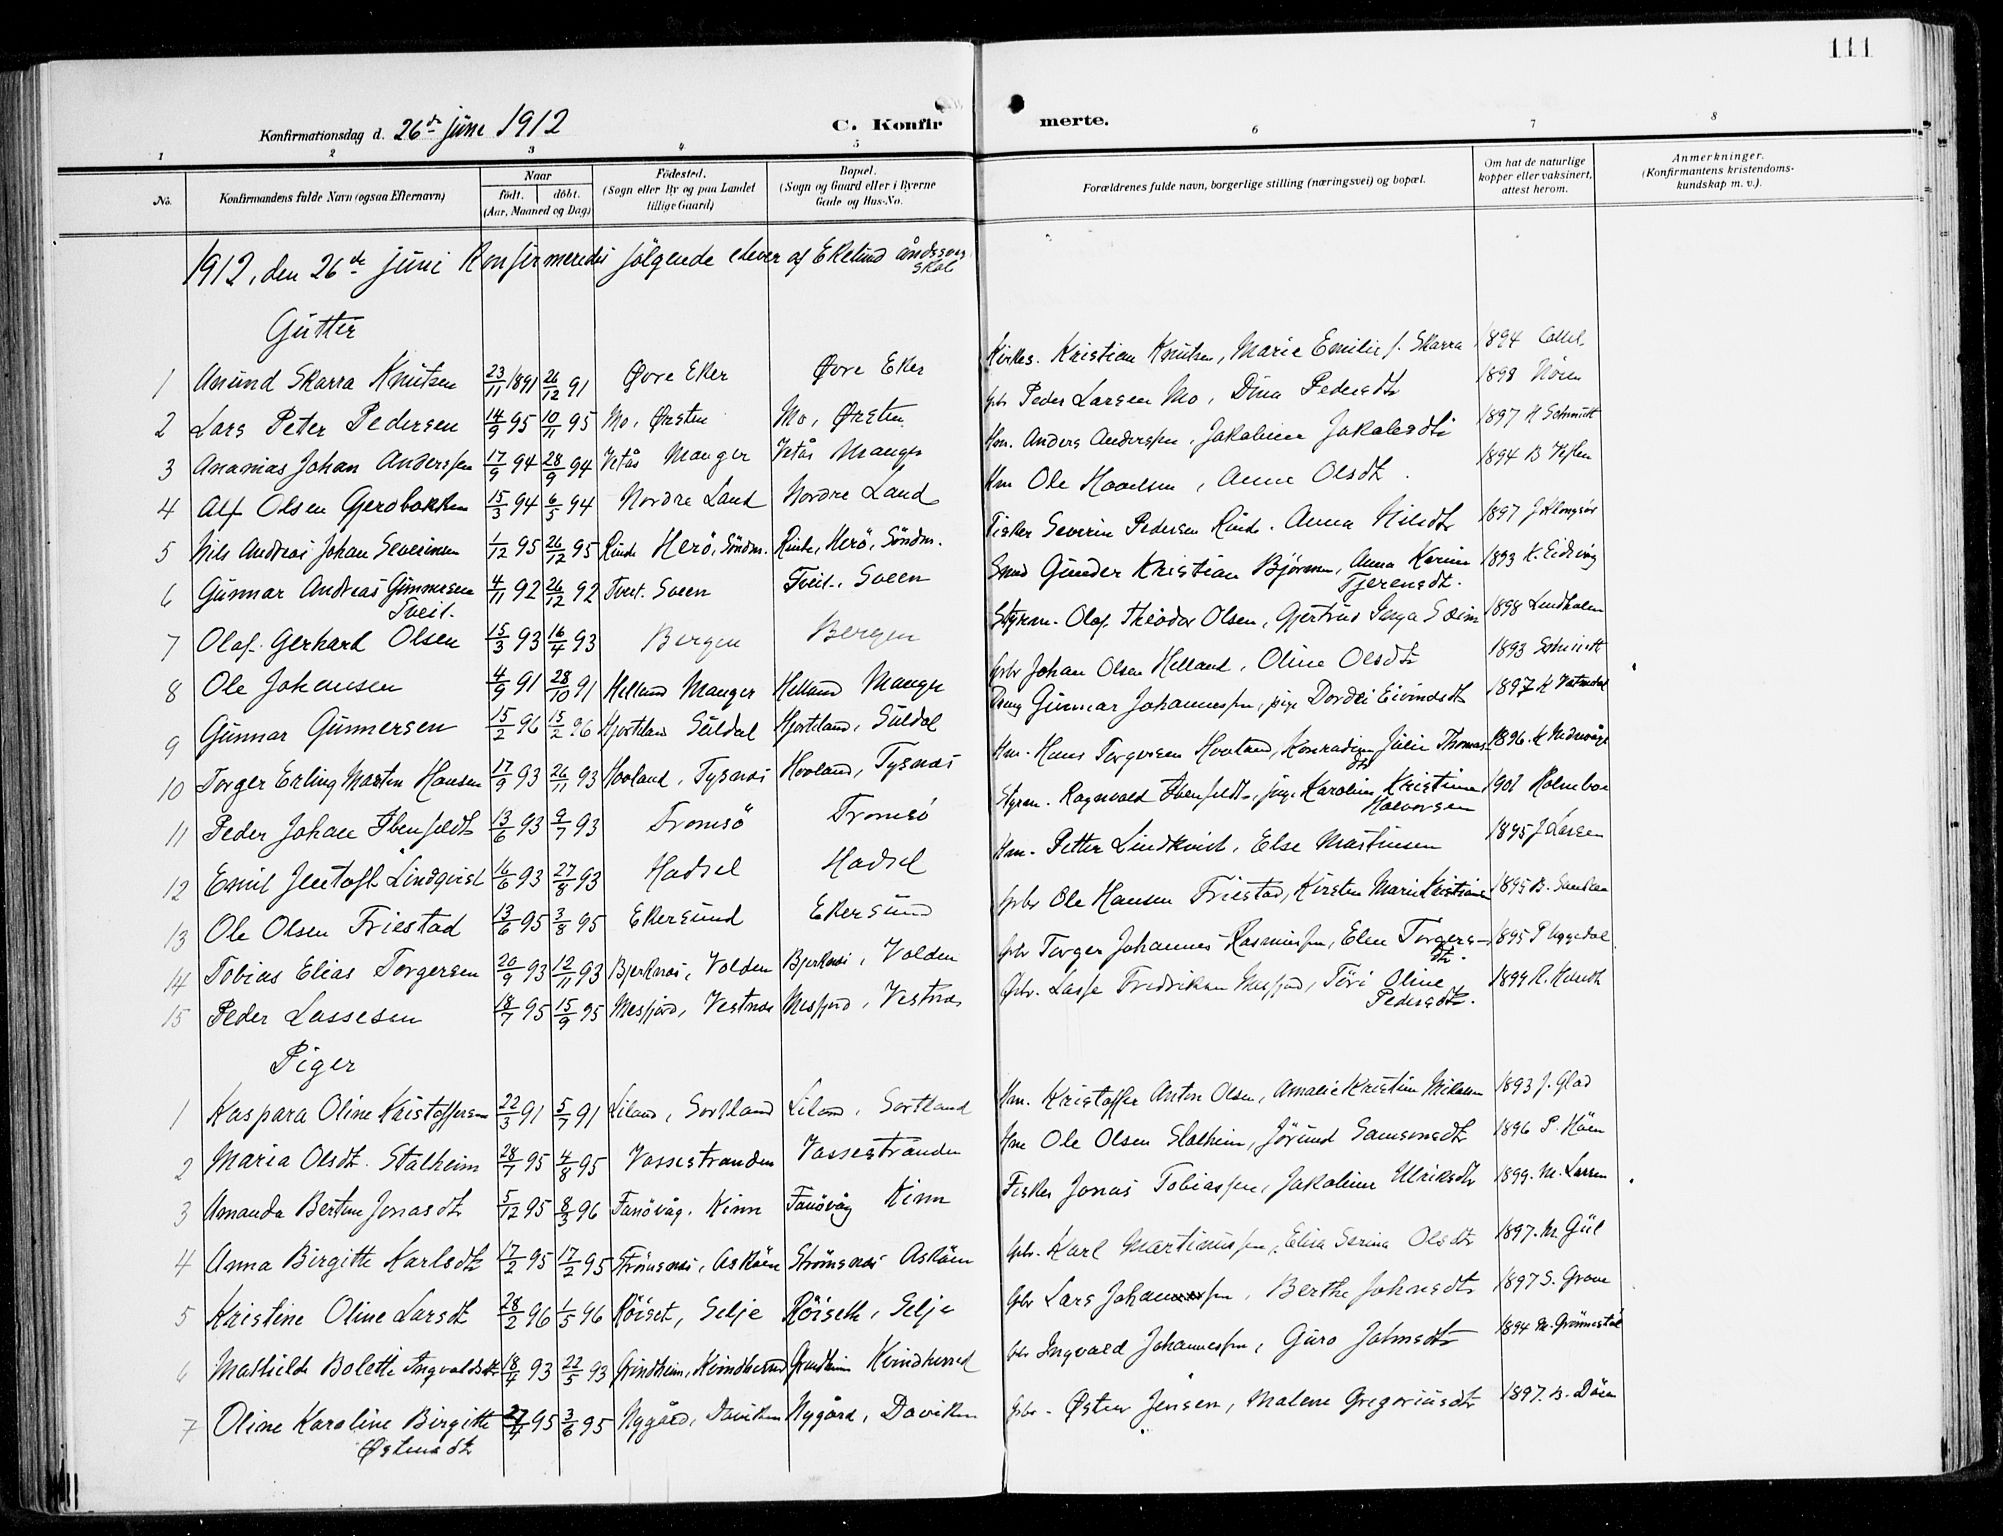 111
Konfirmationsdag d. 26de june 1912 C. Konfir merte.
1 2 3 4 5 6 7 8
No. Konfirmandens fulde Navn (ogsaa Efternavn) Naar født. døbt. (Aar, Maaned og Dag) Fødested. (Sogn eller By og paa Landet tillige Gaard) Bopæl. (Sogn og Gaard eller i Byerne Gade og Hus-No. Forældrenes fulde navn, borgerlige stilling (næringsvei) og bopæl. Om hat de naturlige kopper eller vaksinert, attest herom. Anmerkninger. (Konfirmantens kristendoms- kundskap m. v.).
1912, den 26de juni Konfirmeredes følgende elever af Ekelund åndssvag
skol
Gutter
1 Anund Skarra Knutsen 23/11 1891 26/12 91 Øvre Eker Øvre Eker Kirkes. Kristian Knutsen, Marie Emilie f. Skarra 1894
2 Lars Peter Pedersen 14/9 95 10/11 95 Mo, Ørsten Mo, Ørsten Gbr Peder Larsen Mo, Dina Pedersdtr 1898
3 Ananias Johan Anderssen 17/9 94 28/9 94 Vetås Manger Vetås Manger Hm. Anders Anderssen, Jakobine Jakobsdtr 1897 H Schmidt
4 Alf Olsen Gjerdbakken 15/3 94 6/5 94 Nordre Land Nordre Land Hm Ole Hovelsen, Anne Olsdtr 1894 B
5 Nils Andreas Johan Severinsen 1/12 95 26/12 95 Rinde Herö, Söndm. Rinde, Herö, Söndm. Fisker Severin Pedersen Rinde. Anna Nilsdtr 1897
6 Gunnar Andreas Gunnersen 4/11 92 26/12 92 Tveit. Sveen Tveit. Sveen Smed Gunder Kristian Bjørnsen, Anna Karine 1893 K. Eidsvåg
Tveit. Tjerensdtr.
7 Olaf Gerhard Olsen 15/3 93 16/4 93 Bergen Bergen Styrm. Olaf Theodor Olsen, Gjertrud Seim 1898 Lindholm
8 Ole Johansen 4/9 91 28/10 91 Helland Manger Helland Manger Gbr Johan Olsen Helland, Oline Olsdtr 1893 Schmidt
9 Gunnar Gunnersen 15/2 96 15/2 96 Hjorteland Suldal Hjorteland, Suldal Dreng Gunnar Johannessen, pige Dordei Eivindsdtr 1897 K Vatnedal
10 Torger Erling Martin Hansen 17/9 93 26/11 93 Hovland, Tysnæs Hovland, Tysnæs Hm. Hans Torgersen Hovland, Konradine Julie Thomas- 1896. K Nedrevåge
dtr
11 Peder Johan Ibenfeldt 13/6 93 9/7 93 Tromsö Tromsö Styrm. Ragnvald Ibenfeldt, pige Karoline Kristine 1901 Holmboe
Halvorsen
12 Emil Jentoft Lindqvist 16/6 93 27/8 93 Hadsel Hadsel Hm. Petter Lindkvist, Else Martinsen 1895 J Larsen
13 Ole Olsen Friestad 13/6 95 3/8 95 Ekersund Ekersund Gbr Ole Hansen Friestad, Kirsten Marie Kristiane 1895 B.
14 Tobias Elias Torgersen 20/9 93 12/11 93 Bjerknæs, Volden Bjerknæs, Volden Gbr Torger Johannes Rasmussen, Elen Torgers- 1895 P Uggedal
dtr.
15 Peder Lassesen 18/7 95 15/9 95 Mesfjord, Vestnæs Mesfjord, Vestnæs Gbr. Lasse Fredriksen Mesfjord, Töri Oline 1899 R.
Pedersdtr.
Piger
1 Kaspara Oline Kristoffersen 22/3 91 5/7 91 Liland, Sortland Liland, Sortland Hm. Kristoffer Anton Olsen, Amalie Kristine Nikolaisen 1893 J. Glad
2 Maria Olsdtr. Stalheim 28/7 95 4/8 95 Vossestranden Vossestranden Hm Ole Olsen Stalheim, Jörund Samsonsdtr 1896 P. Höen
3 Amanda Bertine Jonasdtr 5/12 95 8/3 96 Fanövåg. Kinn Fanövåg Kinn Fisker Jonas Tobiassen, Jakobine Ulriksdtr 1899. M. Larsen
4 Anna Birgitte Karlsdtr 17/2 95 17/2 95 Strömsnæs, Asköen Strömsnæs Asköen Gbr. Karl Martinussen, Elisa Serina Olsdtr 1897. M. Giil
5 Kristine Oline Larsdtr 28/2 96 1/5 96 Röiset, Selje Röiseth, Selje Gbr Lars Johansen, Berthe Johnsdtr 1897 S. Grave
6 Mathilde Bolette Ingvaldsdtr 18/4 93 22/5 93 Grindheim, Kvindherred Grindheim Kvindherred Gbr Ingvald Johannessen, Guro Johnsdtr 1894 M. Grönnestøl
7 Oline Karoline Birgitte 27/4 95 3/6 95 Nygård, Daviken Nygård, Daviken Gbr. Østen Jensen, Malene Gregoriusdtr 1897. B. Döen
Østensdtr